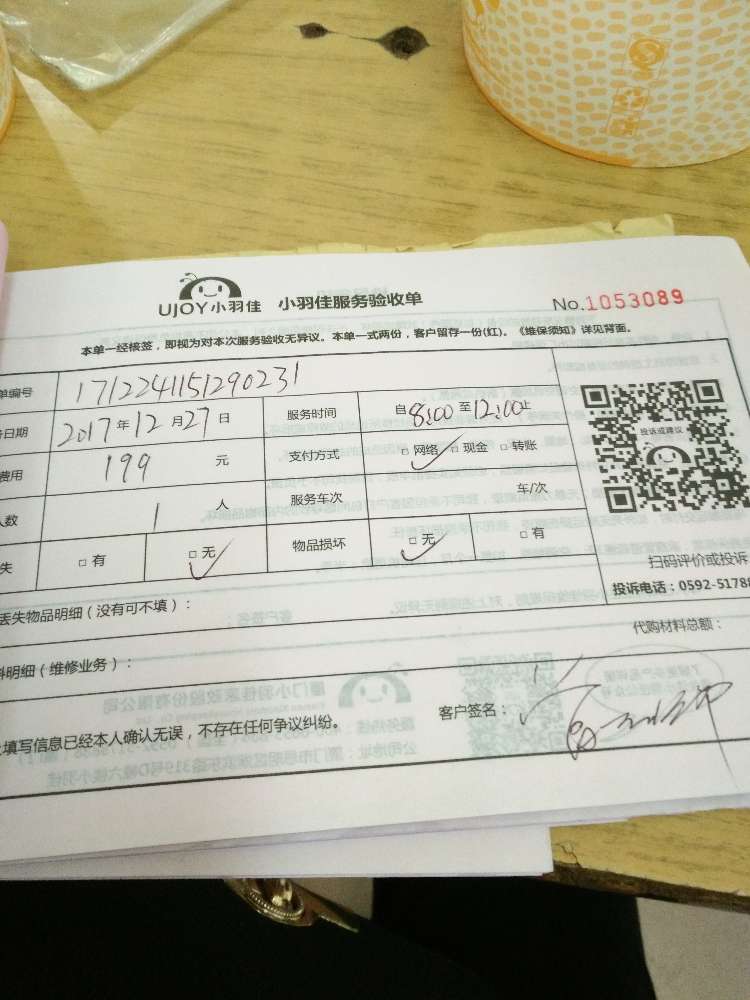 UJOY小羽佳 小羽佳服务验收单 No.1053089
本单一经核签，即视为对本次服务验收无异议。本单一式两份，客户留存一份(红)。《维保须知》详见背面。
单编号 1712241151290231
日期 2017年12月27日 服务时间 自8:00至12:00止
费用 199 元 支付方式 □网络 □现金 □转账
人数 1 人 服务车次 车/次
失 □有 □无 物品损坏 □无 □有
投诉或建议
扫码评价或投诉
投诉电话：0592-51788
丢失物品明细（没有可不填）：
代购材料总额：
料明细（维修业务）：
填写信息已经本人确认无误，不存在任何争议纠纷。 客户签名：